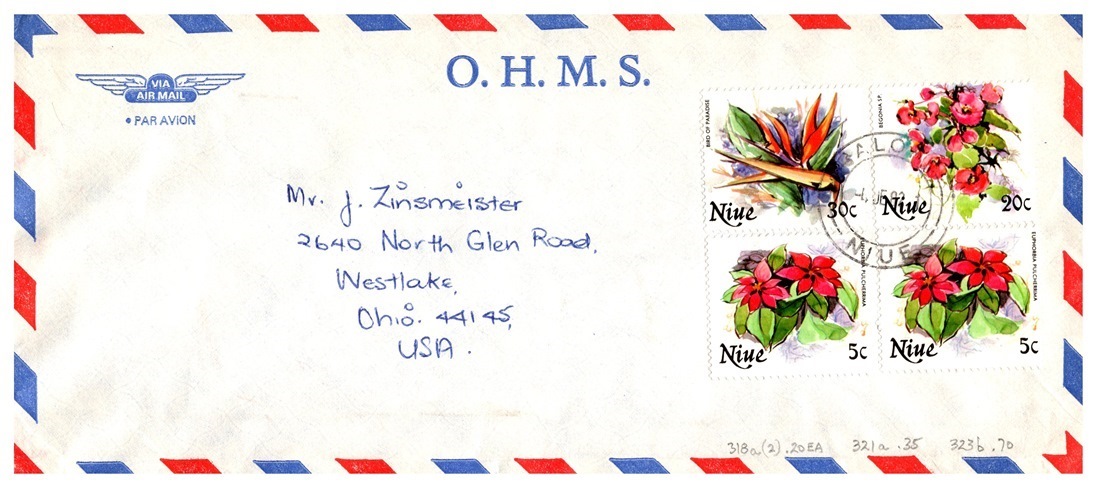 O. H. M. S.
VIA
AIR MAIL
• PAR AVION
Mr. J. Zinsmeister
2640 North Glen Road,
Westlake,
Ohio. 44145,
USA.
BIRD OF PARADISE
Niue 30c
BEGONIA SP.
Niue 20c
EUPHORBIA PULCHERRIMA
Niue 5c
EUPHORBIA PULCHERRIMA
Niue 5c
ALO
NIUE
318a(2).20EA 321a .35 323b .70